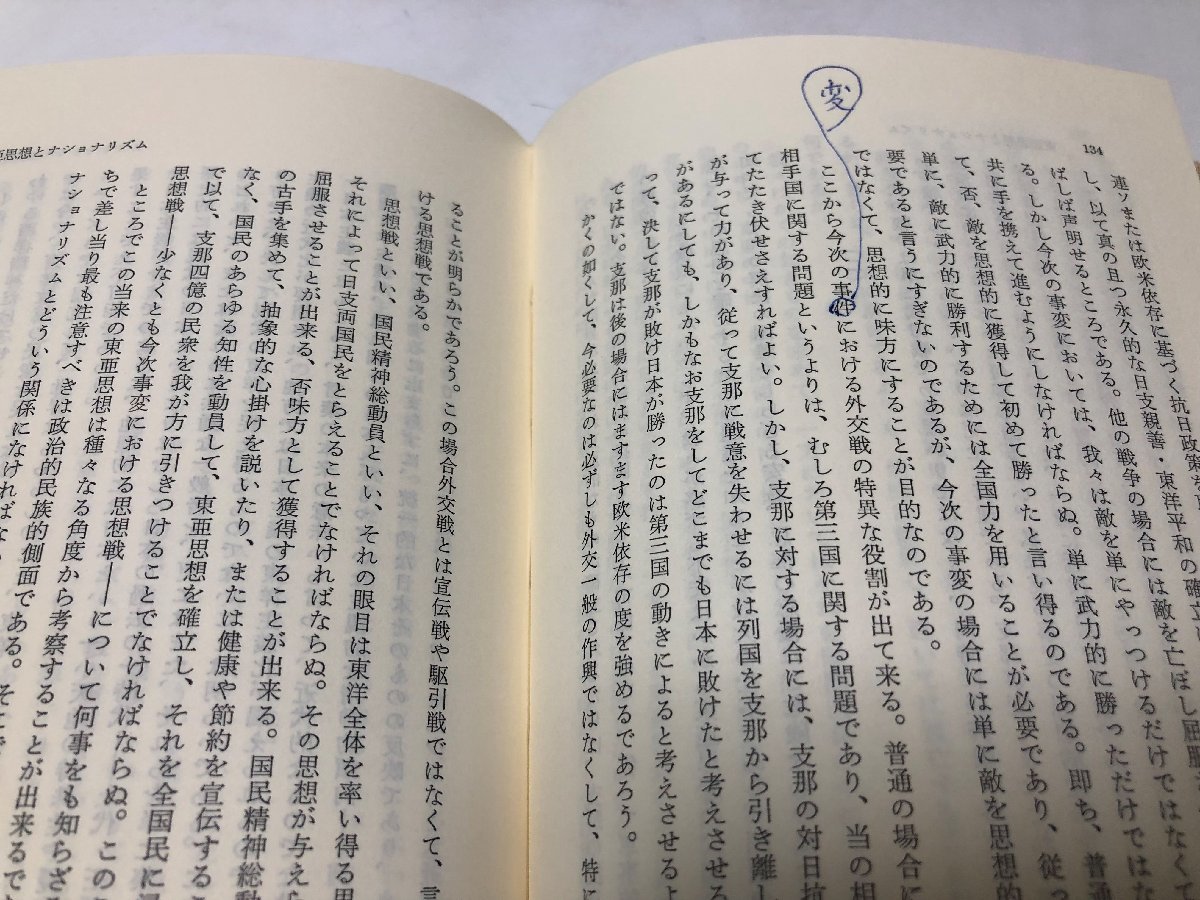 134
連ソまたは欧米依存に基づく抗日政策を
し、以て真の且つ永久的な日支親善・東洋平和の確立
ばしば声明せるところである。他の戦争の場合には敵を亡ぼし屈服
る。しかし今次の事変においては、我々は敵を単にやっつけるだけではなく
共に手を携えて進むようにしなければならぬ。単に武力的に勝っただけでは
て、否、敵を思想的に獲得して初めて勝ったと言い得るのである。即ち、普
単に、敵に武力的に勝利するためには全国力を用いることが必要であり、従っ
要であると言うにすぎないのであるが、今次の事変の場合には単に敵を思想的
ではなくて、思想的に味方にすることが目的なのである。
変
ここから今次の事件における外交戦の特異な役割が出て来る。普通の場合に
相手国に関する問題というよりは、むしろ第三国に関する問題であり、当の相
てたたき伏せさえすればよい。しかし、支那に対する場合には、支那の対日抗
が与って力があり、従って支那に戦意を失わせるには列国を支那から引き離し
があるにしても、しかもなお支那をしてどこまでも日本に敗けたと考えさせる
って、決して支那が敗け日本が勝ったのは第三国の動きによると考えさせるよ
ではない。支那は後の場合にはますます欧米依存の度を強めるであろう。
かくの如くして、今必要なのは必ずしも外交一般の作興ではなくして、特に
亜思想とナショナリズム
ることが明らかであろう。この場合外交戦とは宣伝戦や駆引戦ではなくて、言
ける思想戦である。
思想戦といい、国民精神総動員といい、それの眼目は東洋全体を率い得る思
それによって日支両国民をとらえることでなければならぬ。その思想が与えら
屈服させることが出来る、否味方として獲得することが出来る。国民精神総動
の古手を集めて、抽象的な心掛けを説いたり、または健康や節約を宣伝するこ
なく、国民のあらゆる知性を動員して、東亜思想を確立し、それを全国民に浸
で以て、支那四億の民衆を我が方に引きつけることでなければならぬ。この
思想戦――少なくとも今次事変における思想戦――について何事をも知らざ
ところでこの当来の東亜思想は種々なる角度から考察することが出来るで
ちで差し当り最も注意すべきは政治的民族的側面である。そこで
ナショナリズムとどういう関係になければな